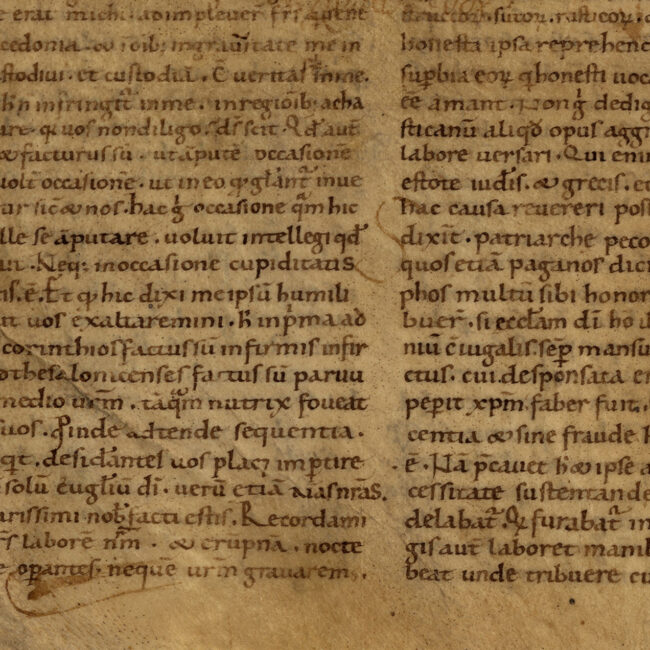 e erat michi. adimpleuer̄ fr̄s qui ue
cedonia. & ī oīb; ingrauitate me in
stodiui. et custodiā. Ē ueritas in me.
h̄n infringit̄ in me. inregionib; acha
are. quos nondiligo. d̄s scit. Qd̄ aut̄
& facturus sū. ut āputē occasionē
uolt̄ occasionē. ut in eo q̄ gl̄ant̄ inue
ur sic & nos. hac ġ occasione q̄m hic
lle se āputare. uoluit intellegi qd̄
Neq; inoccasione cupiditatis
is. ē. Et q̄ hic dixi me ipsū humili
ut uos exaltaremini. h̄ in p̄ma ad
corinthios factus sū infirmis infir
othesalonicenses factus sū paruu
medio ur̄m. tāq̄m nutrix foueat
suos. Proinde adtende sequentia.
desidantes uos plac; imptire
solū eugl̄iū dī. uerū etiā aīas nr̄as.
arissimi nob̄ facti estis. Recordami
labore nr̄m. & erūpna. nocte
e opantes. neque ur̄m grauarem
structor. sutor. rusticor.
honesta ipsa reprehenc
supbia eor. q̄ honesti uoc
ēē amant. Non ġ dedig
sticanū aliqd̄ opus aggr
labore uersari. Qui enim
estote iudīs. & grecis. et
hac causa reuereri post
dixit̄. patriarche peco
quos etiam paganos dici
phos multū sibi honor
buer̄. si eccl̄am dī ho il
niū c̄iugalis. sēp mansu
ctus. cui desponsata er
pepit xp̄m. faber fuit.
centia & sine fraude h
ē. Nā p̄cauet h̄ & ipse a
cessitate sustentande
delabat̄. & furabat̄ in
gis aut̄ laboret manib
beat unde tribuere cu